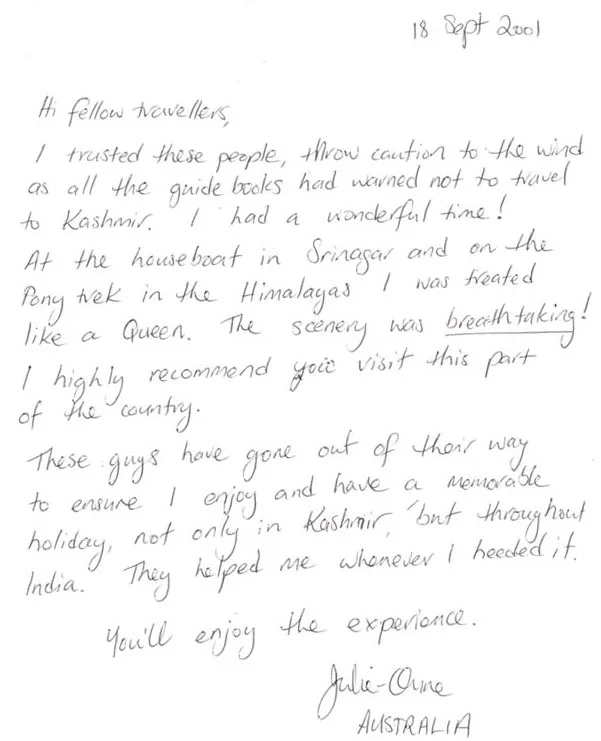 18 Sept 2001
Hi fellow travellers,
I trusted these people, throw caution to the wind
as all the guide books had warned not to travel
to Kashmir. I had a wonderful time!
At the houseboat in Srinagar and on the
Pony trek in the Himalayas I was treated
like a Queen. The scenery was breathtaking!
I highly recommend you visit this part
of the country.
These guys have gone out of their way
to ensure I enjoy and have a memorable
holiday, not only in Kashmir, but throughout
India. They helped me whenever I needed it.
You'll enjoy the experience.
Julie-Anne
AUSTRALIA